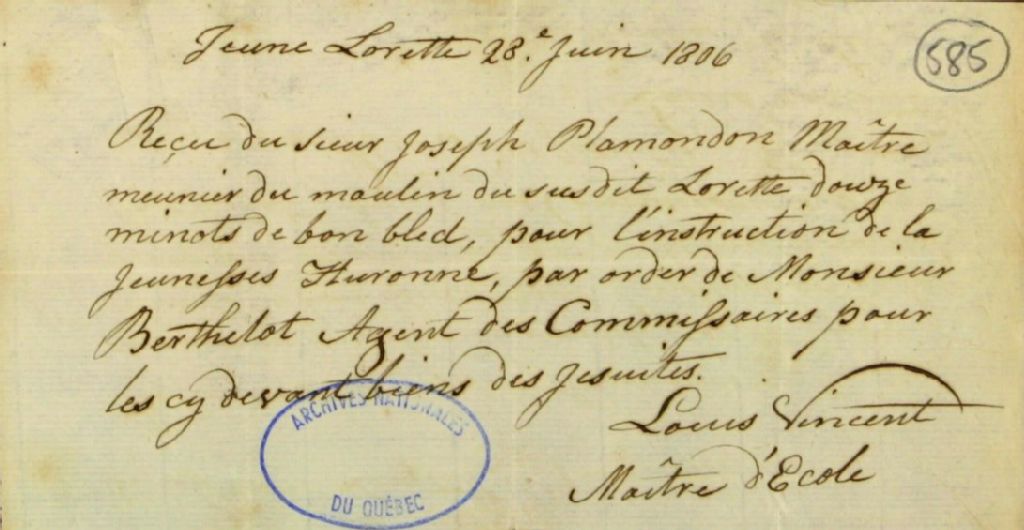 Jeune Lorette 28.e Juin 1806
585
Reçu du sieur Joseph Plamondon Maître
meunier du moulin du susdit Lorette douze
minots de bon bled, pour l'instruction de la
Jeunesses Huronne, par order de Monsieur
Berthelot Agent des Commissaires pour
les cy devant biens des Jesuites.
Louis Vincent
Maître d'Ecole
ARCHIVES NATIONALES
DU QUÉBEC